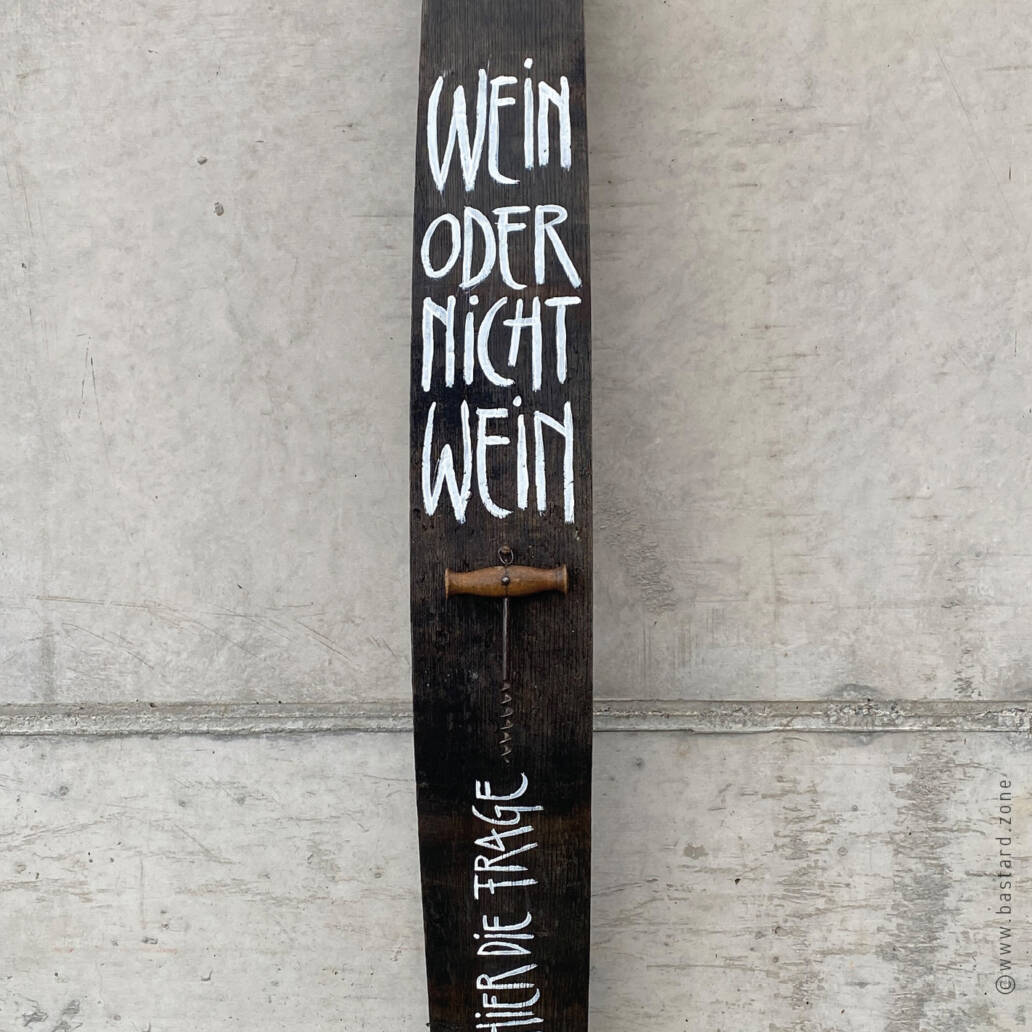 WEiN
ODER
NiCHT
WEiN
HiER DiE FRAGE
©www.bastard.zone